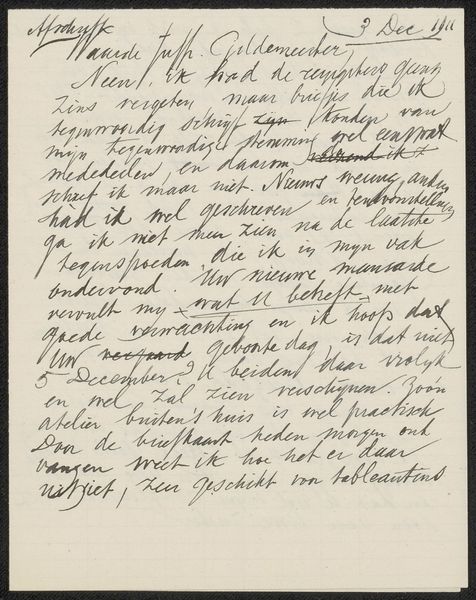 Afschrift
3 Dec 1911
Waarde Juffr. Gildemeester,
Neen, ik had de reisgids geens
zins vergeten, maar briefjes die ik
tegenwoordig schrijf zijn konden van
mijn tegenwoordige stemming wel eens wat
mededeelen, en daarom ik
schreef ik maar niet. Nieuws weinig, anders
had ik wel geschreven en tentoonstellingen
ga ik niet meer zien na de laatste
tegenspoeden die ik in mijn vak
ondervond. Uw nieuwe mansarde
vervult mij wat U betreft met
goede verwachting en ik hoop dat
Uw verjaard geboortedag, is dat niet
5 December? U beiden daar vrolyk
en wel zal zien verschijnen. Zoo'n
atelier buiten's huis is wel practisch
Door de briefkaart heden morgen ont
vangen weet ik hoe het er daar
uitziet, zeer geschikt voor tableautens